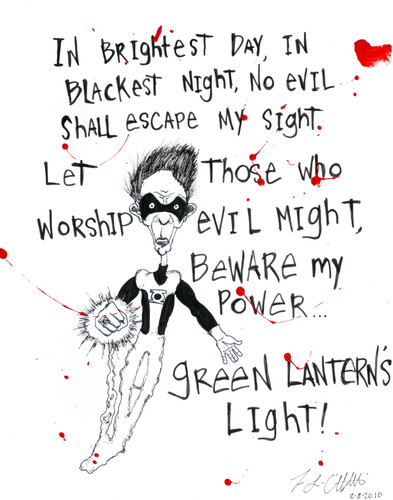 In Brightest Day, In
Blackest Night, No evil
Shall escape my Sight.
Let Those who
worship evil Might,
Beware my
Power...
green Lantern's
Light!
2010